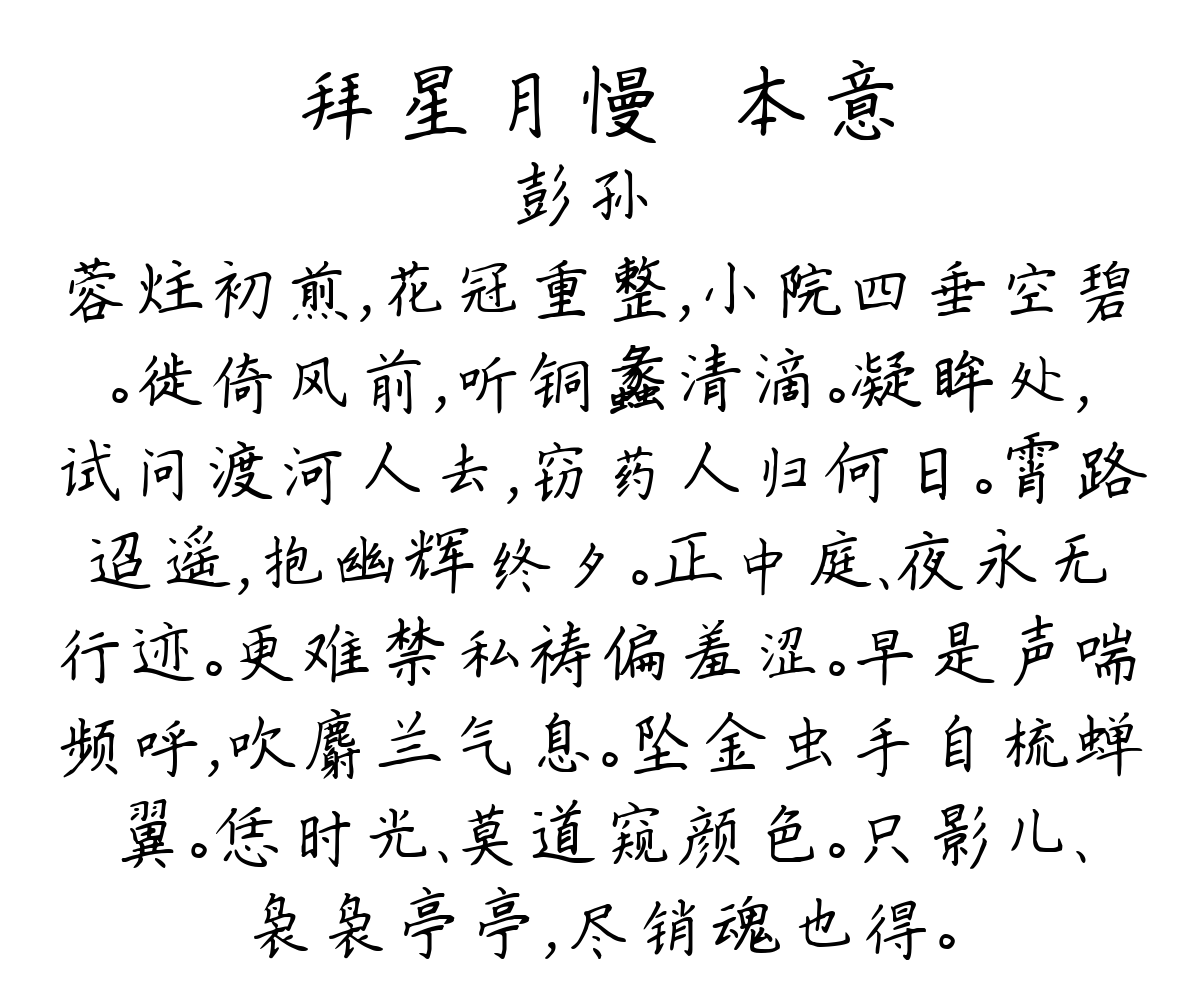 拜星月慢 本意
彭孙
蓉炷初煎,花冠重整,小院四垂空碧
。徙倚风前,听铜蠡清滴。凝眸处,
试问渡河人去,窃药人归何日。霄路
迢遥,抱幽辉终夕。正中庭、夜永无
行迹。更难禁私祷偏羞涩。早是声喘
频呼,吹麝兰气息。坠金虫手自梳蝉
翼。恁时光、莫道窥颜色。只影儿、
袅袅亭亭,尽销魂也得。